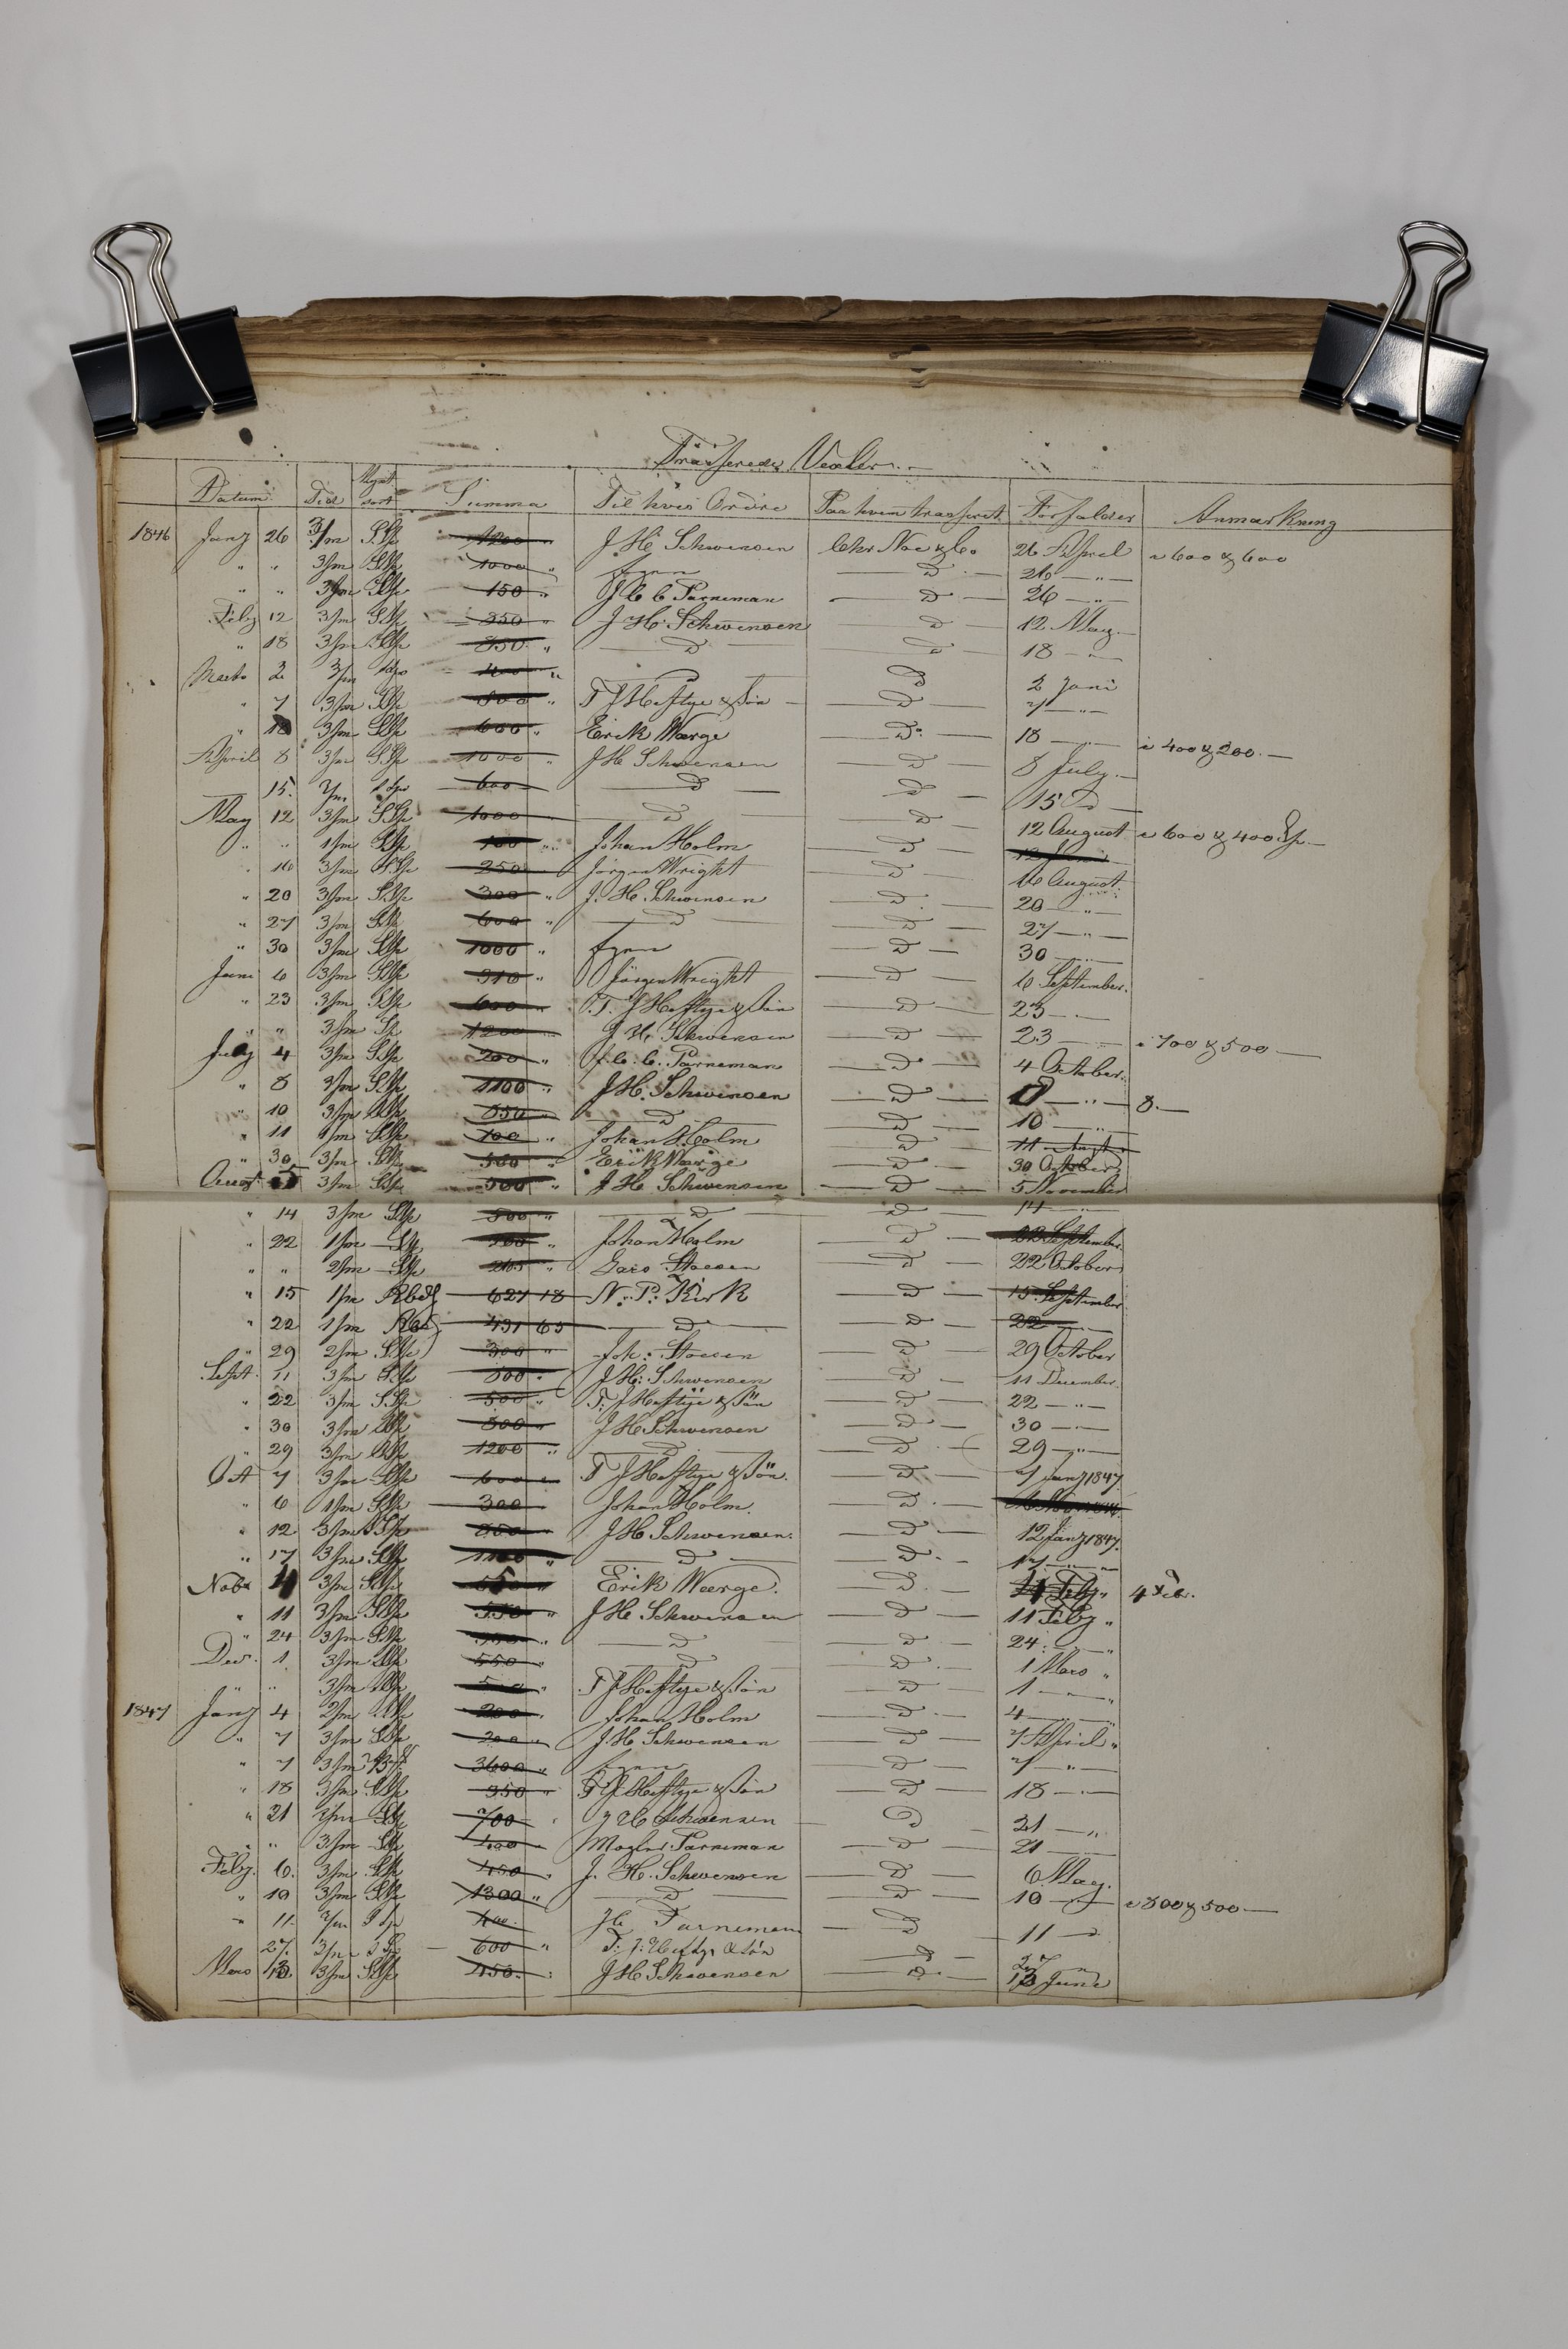 Trasserede Vexler.
Datum Tid Mynt sort Summa Til hvis Ordre Paa hvem trasseret Forfalder Anmærkning
1846 Janʒ 26 3/m S.Sp 1200 J H Schwensen Chr Noe & Co 26 April a 600 & 600
" " 3/m S.Sp 1000 " D 26 "
" " 3/m S.Sp 150 " J C C Parneman D 26 "
Febʒ 12 3/m S.Sp 350 " J H Schwensen D 12 May
" 18 3/m S.Sp 350 " D D 18 "
Marts 2 3/m 400 " D D 2 Juni
" 7 3/m S.Sp 800 " T J Heftye & Søn D 7 "
" 18 3/m S.Sp 600 " Erik Warge D 18 a 400 & 200
April 8 3/m S.Sp 1000 " J H Schwensen D 8 July
15 600 D D 15 D
May 12 3/m S.Sp 1000 D D 12 August a 600 & 400 Sp
" " 1/m S.Sp 100 " Johan Holm D 12 Juni
" 16 3/m S.Sp 250 Jørgen Wright D 16 August
" 20 3/m S.Sp 300 " J. H. Schwensen D 20 "
" 27 3/m S.Sp 600 " D D 27 "
" 30 3/m S.Sp 1000 " D 30
Juni 6 3/m S.Sp 310 " Jørgen Wright D 6 September
" 23 3/m S.Sp 600 T. J Heftye & Søn D 23
" " 3/m Sp 1200 J H Schwensen D 23 a 700 & 500
July 4 3/m S.Sp 200 " J. C. C. Parneman D 4 October
" 8 3/m S.Sp 1100 " J H. Schwensen D " 8.
" 10 3/m S.Sp 650 D D 10 "
" 11 1/m S.Sp 100 " Johan Holm D 11 Augst
" 30 3/m S.Sp 500 " Erik Warge D 30 October
Augst 5 3/m S.Sp 500 " J H Schwensen D 5 November
" 14 3/m S.Sp 500 " D D 14 "
" 22 1/m Sp " Johan Holm D 22 September
" " 2/m Sp 265 " Lars Stoesen D 22 October
" 15 1/m Rbd 621 18 N. P. Kirk D 15 September
" 22 1/m Rbd 431 65 D D 22
" 29 2/m S.Sp 300 " Joh: Stoesen D 29 October
Sept. 11 3/m S.Sp 500 " J H: Schwensen D 11 December
" 22 3/m S.Sp 500 " T. J Heftye & Søn D 22 "
" 30 3/m S.Sp 800 " J H Schwensen D 30
" 29 3/m S.Sp 1200 " D D 29 "
Oct 7 3/m S.Sp 600 T J Heftye & Søn. D 7 Janʒ 1847
" 6 1/m S.Sp 300 Johan Holm. D
" 12 3/m S.Sp J H Schwensen. D 12 Janʒ 1847
" 17 3/m S.Sp " D D 17 "
Nobr 4 3/m S.Sp " Erik Warge. D Febʒ " 4 Feb.
" 11 3/m S.Sp 550 " J H Schwensen D 11 Febʒ "
" 24 3/m S.Sp " D D 24 "
Dec. 1 3/m S.Sp 550 " D D 1 Mars "
" " 3/m S.Sp 500 " T J Heftye & Søn D 1 "
1847 Janʒ 4 2/m S.Sp 200 " Johan Holm D 4 "
" 7 3/m S.Sp 200 " J H Schwensen D 7 April "
" 7 3/m 3600 " D 7 "
" 18 3/m S.Sp 350 " T J Heftye & Søn D 18
" 21 3/m Sp 700 " J H Schwensen D 21 "
" " 3/m Sp 400 Parneman D 21
Febʒ. 6. 3/m S.Sp 450 " J. H. Schwensen D 6 May.
" 10 3/m S.Sp 1300 " D D 10 a 800 & 500
" 11. 400 Parneman D 11
27. 3/m 600 " T: J: Heftye & Søn D 27 "
Mars 13. 3/m S.Sp 450. J H Schwensen D 13 June